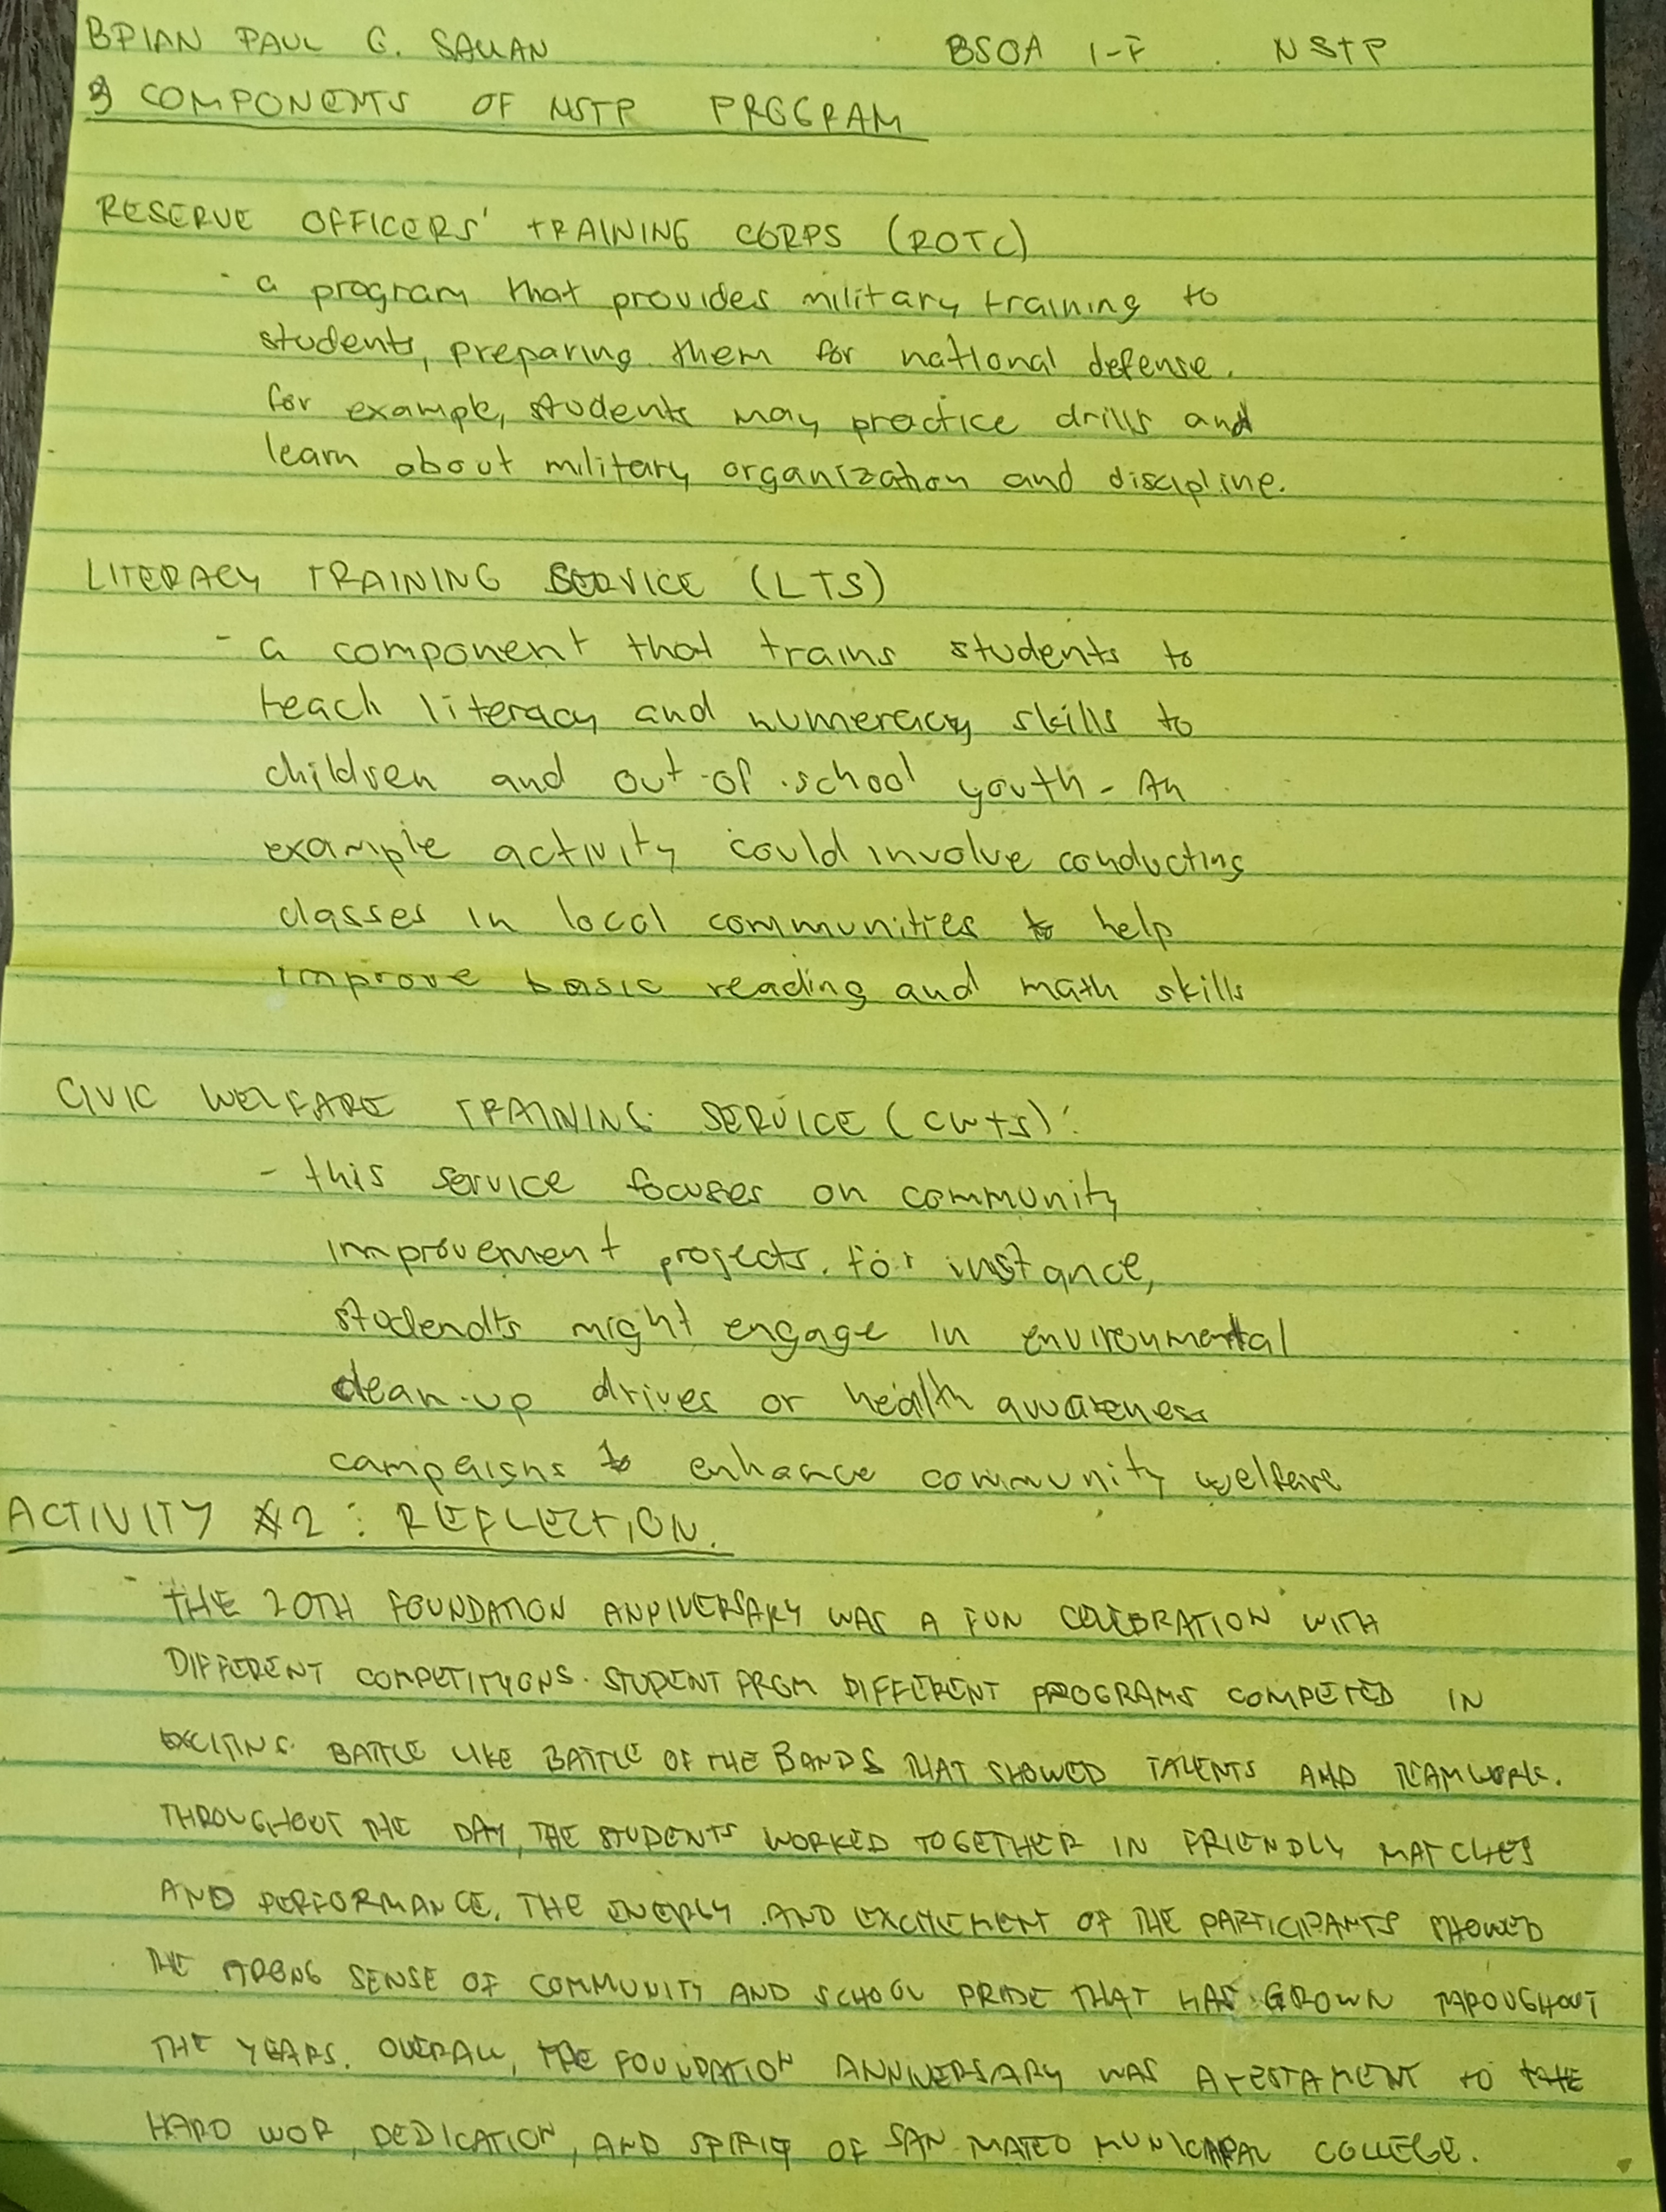 BRIAN PAUL G. SALLAN BSOA 1-F NSTP
3 COMPONENTS OF NSTP PROGRAM
RESERVE OFFICERS' TRAINING CORPS (ROTC)
- a program that provides military training to
students, preparing them for national defense.
for example, students may practice drills and
learn about military organization and discipline.
LITERACY TRAINING SERVICE (LTS)
- a component that trains students to
teach literacy and numeracy skills to
children and out-of-school youth - An
example activity could involve conducting
classes in local communities to help
improve basic reading and math skills
CIVIC WELFARE TRAINING SERVICE (CWTS):
- this service focuses on community
improvement projects. for instance,
students might engage in environmental
clean-up drives or health awareness
campaigns to enhance community welfare
ACTIVITY #2 : REFLECTION.
- THE 20TH FOUNDATION ANNIVERSARY WAS A FUN CELEBRATION WITH
DIFFERENT COMPETITIONS. STUDENT FROM DIFFERENT PROGRAMS COMPETED IN
EXCITING BATTLE LIKE BATTLE OF THE BANDS THAT SHOWED TALENTS AND TEAMWORK.
THROUGHOUT THE DAY, THE STUDENTS WORKED TOGETHER IN FRIENDLY MATCHES
AND PERFORMANCE. THE ENERGY AND EXCITEMENT OF THE PARTICIPANTS SHOWED
THE STRONG SENSE OF COMMUNITY AND SCHOOL PRIDE THAT HAS GROWN THROUGHOUT
THE YEARS. OVERALL, THE FOUNDATION ANNIVERSARY WAS A TESTAMENT TO THE
HARD WOR, DEDICATION, AND SPIRIT OF SAN MATEO MUNICIPAL COLLEGE.